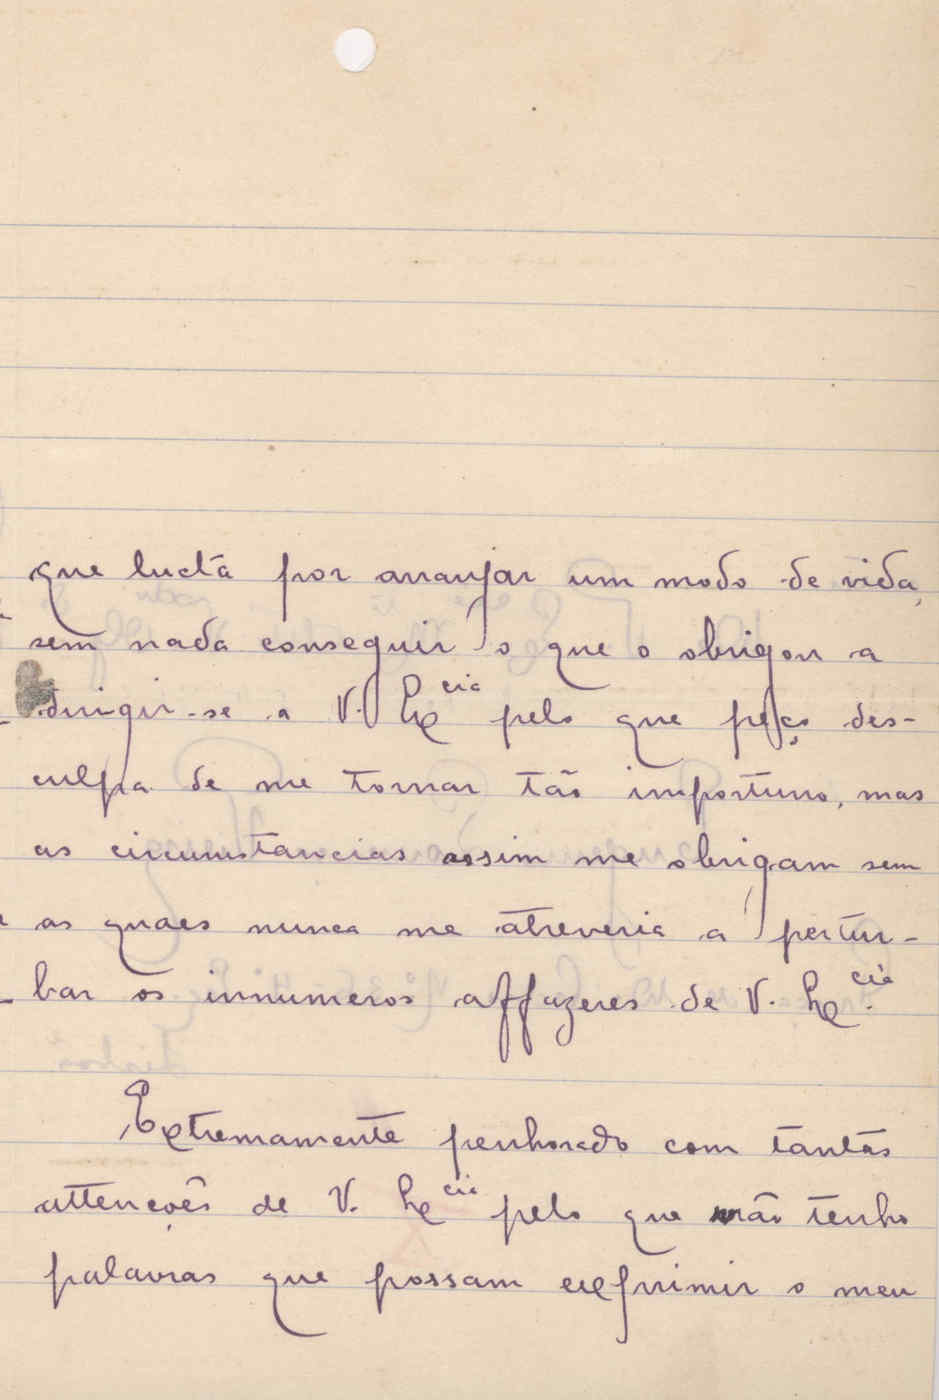 que lucta por arranjar um modo de vida,
sem nada conseguir o que o obrigou a
dirigir-se a V. Ex.cia pelo que peço des-
culpa de me tornar tão importuno, mas
as circumstancias assim me obrigam sem
as quaes nunca me atreveria a pertur-
bar os innumeros affazeres de V. Ex.cia.
Extremamente penhorado com tantas
attenções de V. Ex.cia pelo que não tenho
palavras que possam exprimir o meu